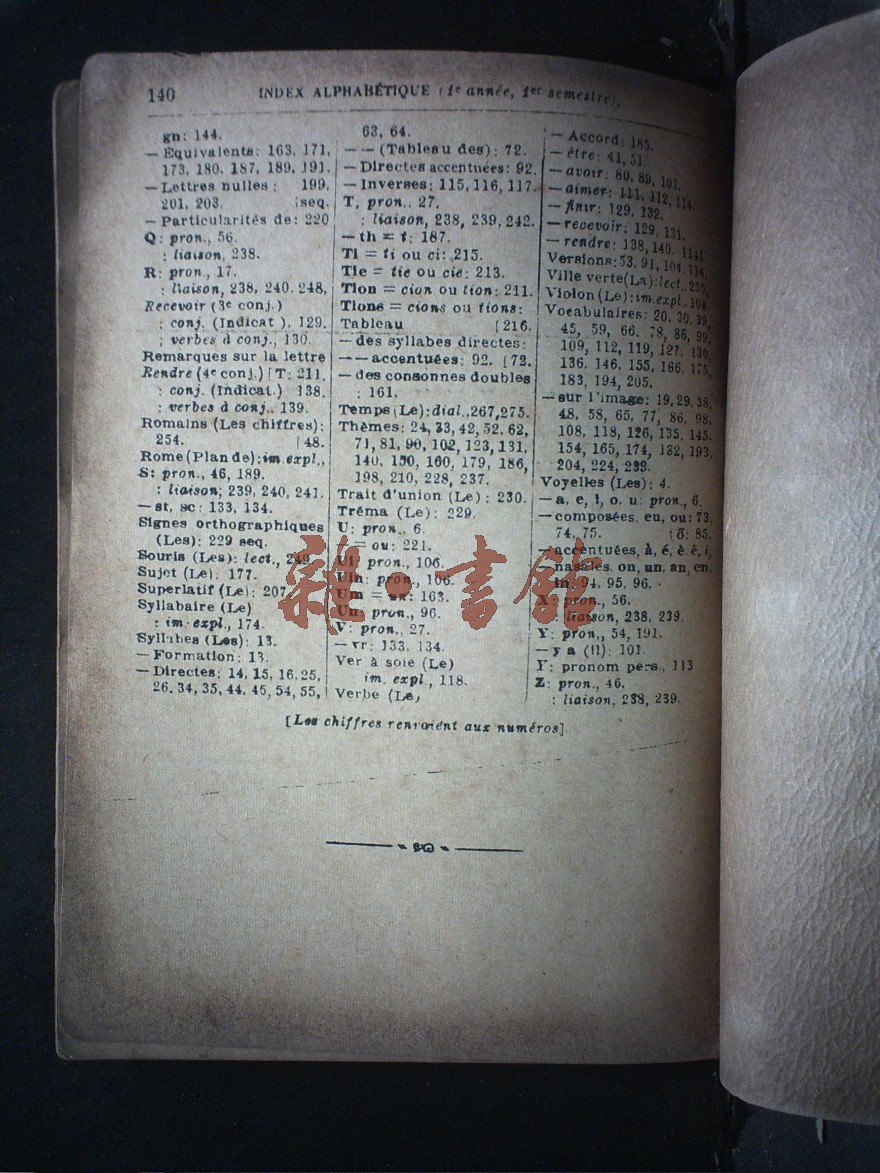 140 INDEX ALPHABÉTIQUE (1e année, 1er semestre).
gn: 144.
— Équivalents: 163, 171,
173, 180, 187, 189, 191.
— Lettres nulles: 199,
201, 203. [seq.
— Particularités de: 220
Q: pron., 56.
: liaison, 238.
R: pron., 17.
: liaison, 238, 240, 248,
Recevoir (3e conj.)
: conj. (Indicat.), 129.
: verbes à conj., 130.
Remarques sur la lettre
Rendre (4e conj.) [T: 211.
: conj. (Indicat.) 138.
: verbes à conj., 139.
Romains (Les chiffres):
254. [48.
Rome (Plan de): im. expl.,
S: pron., 46, 189.
: liaison; 239, 240, 241.
— st, sc: 133, 134.
Signes orthographiques
(Les): 229 seq.
Souris (Les): lect., 249.
Sujet (Le). 177.
Superlatif (Le): 207
Syllabaire (Le)
: im. expl., 174.
Syllabes (Les): 13.
— Formation: 13.
— Directes: 14, 15, 16, 25,
26, 34, 35, 44, 45, 54, 55,
63, 64.
— — (Tableau des): 72.
— Directes accentuées: 92.
— Inverses: 115, 116, 117.
T, pron., 27.
: liaison, 238, 239, 242.
— th = t: 187.
Ti = ti ou ci: 215.
Tie = tie ou cie: 213.
Tion = cion ou tion: 211.
Tions = cions ou tions:
Tableau [216.
— des syllabes directes:
— — accentuées: 92. [72.
— des consonnes doubles
: 161.
Temps (Le): dial., 267, 275.
Thèmes: 24, 33, 42, 52, 62,
71, 81, 90, 102, 123, 131,
140, 150, 160, 179, 186,
198, 210, 228, 237.
Trait d'union (Le): 230.
Tréma (Le): 229.
U: pron., 6.
= ou: 221.
Ui: pron., 106.
Uin: pron., 106.
Um = un: 163.
Un: pron., 96.
V: pron., 27.
— vr: 133, 134.
Ver à soie (Le)
im. expl., 118.
Verbe (Le)
— Accord: 185.
— être: 41, 51.
— avoir: 80, 89, 101.
— aimer: 111, 112, 114.
— finir: 129, 132.
— recevoir: 129, 131.
— rendre: 138, 140.
Versions: 53, 91, 104, 114,
Ville verte (La): lect., 255.
Violon (Le): im. expl., 108.
Vocabulaires: 20, 30, 39,
45, 59, 66, 78, 86, 99,
109, 112, 119, 127, 130,
136, 146, 155, 166, 175,
183, 194, 205.
— sur l'image: 19, 29, 38,
48, 58, 65, 77, 86, 98,
108, 118, 126, 135, 145,
154, 165, 174, 182, 193,
204, 224, 233.
Voyelles (Les): 4.
— a, e, i, o, u: pron., 6.
— composées, eu, ou: 73,
74, 75. [ô: 85.
— accentuées, à, é, è, ê, î,
— nasales, on, un, an, en,
in: 94, 95, 96.
X: pron., 56.
: liaison, 238, 239.
Y: pron., 54, 191.
— y a (Il): 101.
Y: pronom pers., 113
Z: pron., 46.
: liaison, 238, 239.
[Les chiffres renvoient aux numéros].
雜·書館